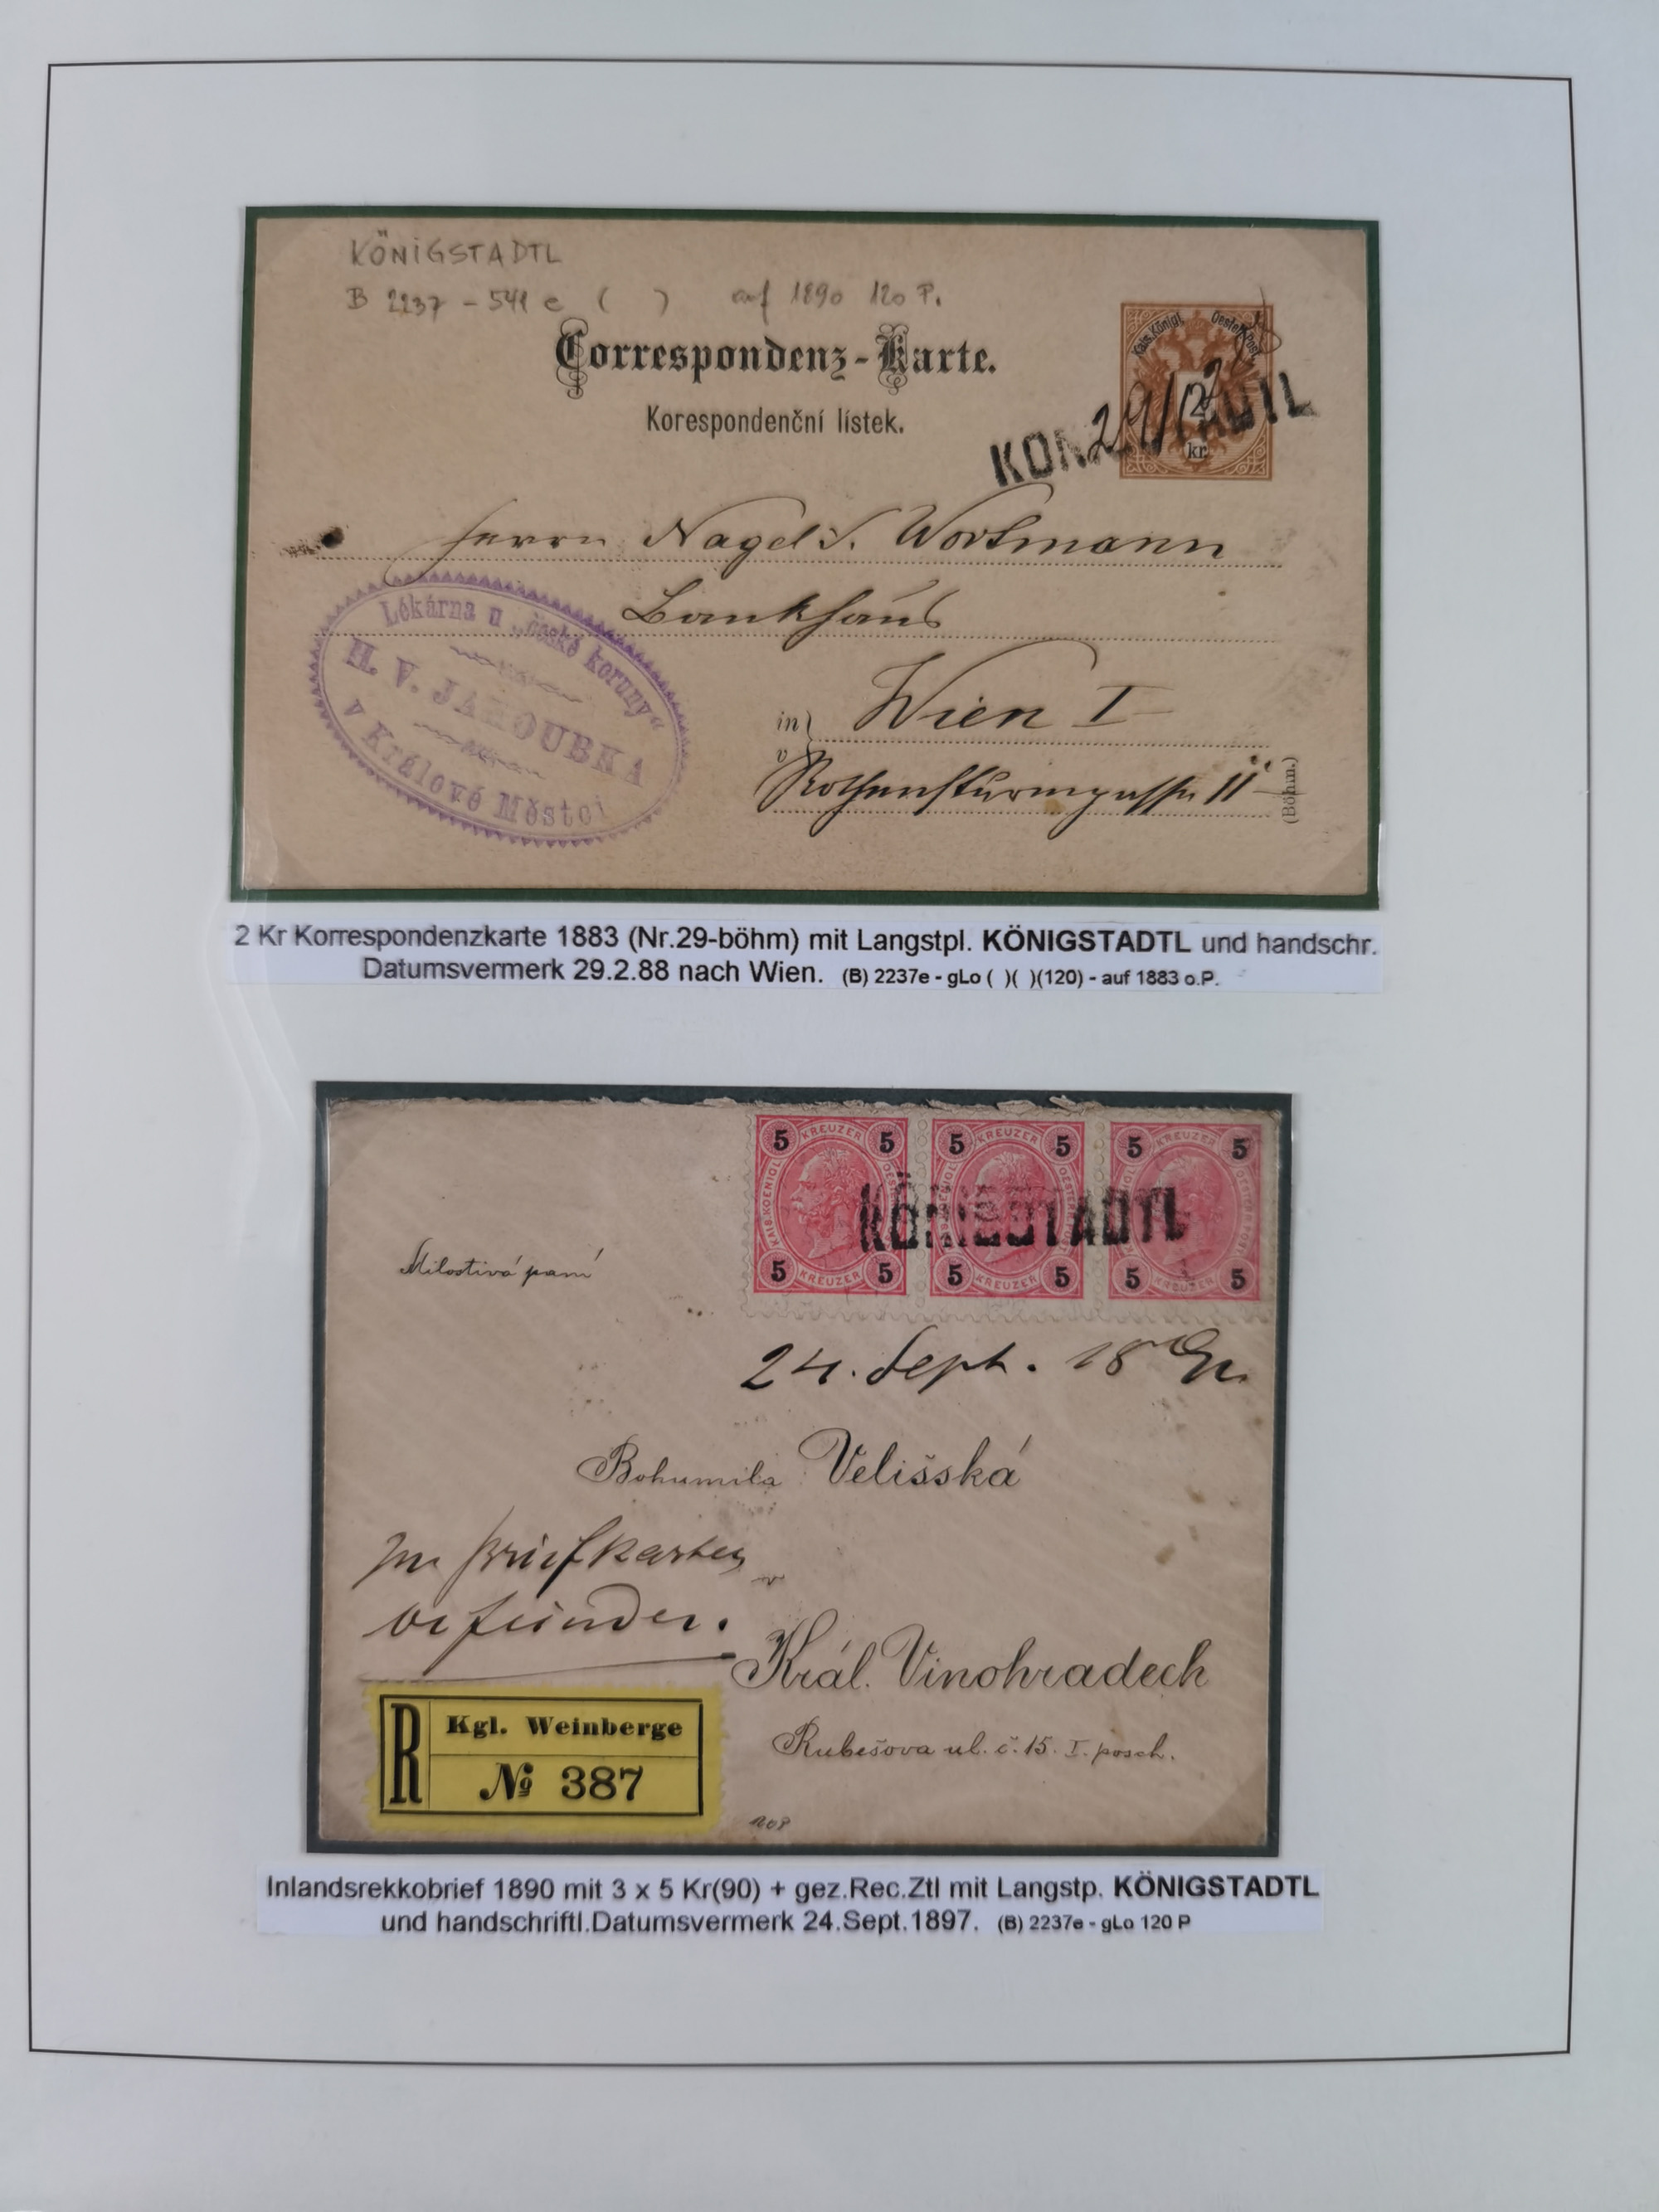 KÖNIGSTADTL
B 2237 - 541 e ( ) auf 1890 120 P.
Correspondenz-Karte.
Korespondenční lístek.
Kais. Königl. Oesterr. Post
2
kr.
29/2 88
Herrn Nagel & Wortmann
Bankhaus
in
v
Wien I
Rothensturmgasse 11
(Böhm.)
Lékárna u „české koruny“
H. V. JAHOUBKA
v Králově Městci
2 Kr Korrespondenzkarte 1883 (Nr.29-böhm) mit Langstpl. KÖNIGSTADTL und handschr.
Datumsvermerk 29.2.88 nach Wien. (B) 2237e - gLo ( )( )(120) - auf 1883 o.P.
5 KREUZER 5 5 KREUZER 5 5 KREUZER 5
KÖNIGSTADTL
5 KREUZER 5 5 KREUZER 5 5 KREUZER 5
Milostivá paní
24. Sept. 18
Bohumila Velišská
Im Briefkasten
befunden.
Král. Vinohradech
Rubešova ul. č. 15. I. posch.
R Kgl. Weinberge
№ 387
120P
Inlandsrekkobrief 1890 mit 3 x 5 Kr(90) + gez.Rec.Ztl mit Langstp. KÖNIGSTADTL
und handschriftl.Datumsvermerk 24.Sept.1897. (B) 2237e - gLo 120 P